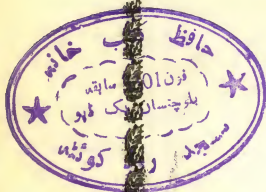 حافظ کتب خانہ
فون 501 سابقہ
بلوچستان بک ڈپو
مسجد روڈ کوئٹہ